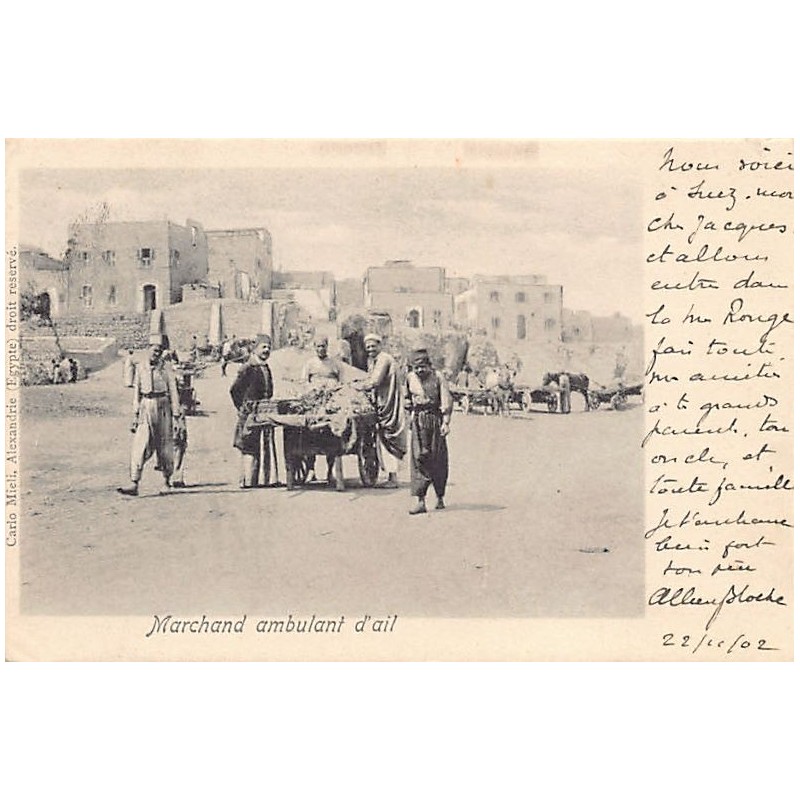 Carlo Mieli, Alexandrie (Egypte) droit reservé.
Marchand ambulant d'ail
Nous voici
à Suez, mon
cher Jacques
et allons
entre dans
la mer Rouge
fais toute
mes amitiés
à tes grands
parents, ton
oncle, et
toute famille
Je t'embrasse
bien fort
ton père
Bloche
22/11/02